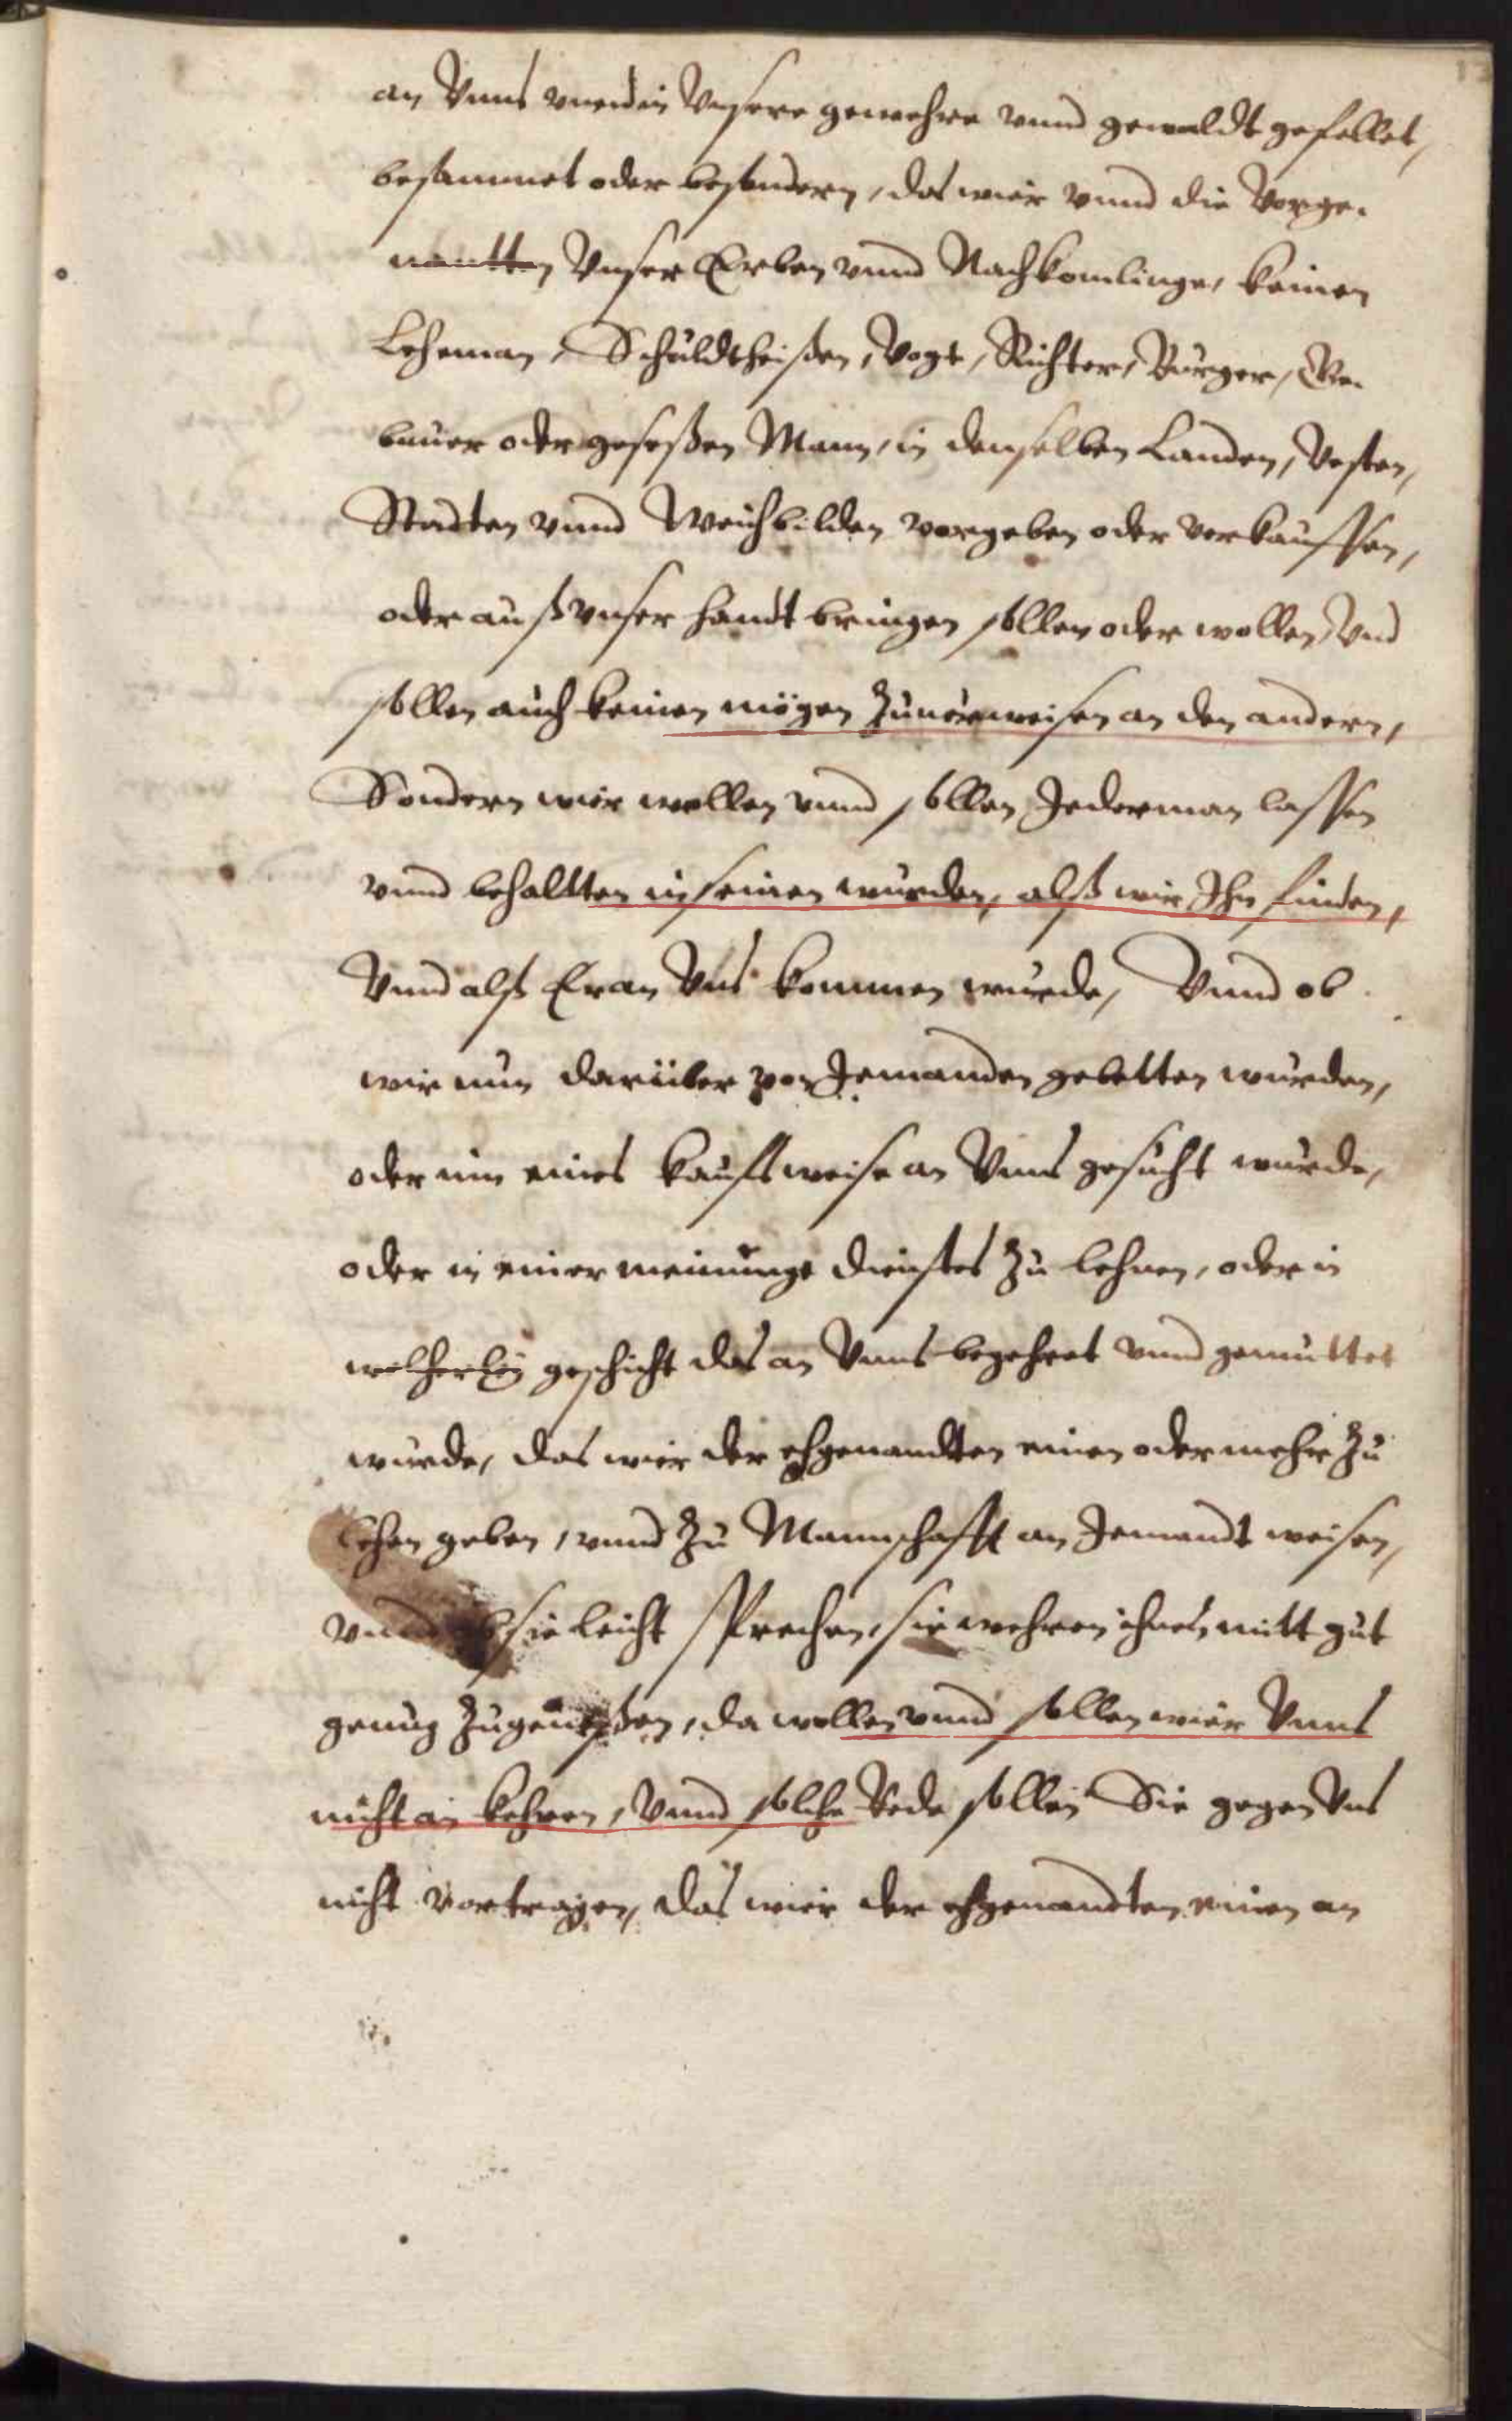 an Vnns vnnd in Vnsere gewehre vnnd gewaldt gefellet,
besammet oder besondern, das wier vnnd die Vorge-
nantten Vnser Erben vnnd Nachkomlinge, keinen
Leheman, Schuldtheißen, Vogt, Richter, Bürger, Ge-
bauer oder gesessßen Mann, in denselben Landen, Vesten,
Stadten vnnd Weichbilden vorgeben oder verkauffen,
oder auß vnser handt bringen sollen oder wollen, Vnd
sollen auch keinen mögen zuuerweisen an den andern,
Sondern wier wollen vnnd sollen Jederman lassen
vnnd behaltten in seinen wurden, alß wir Ihn finden,
Vnnd alß Er an Vns kommen wurde, Vnnd ob
wir nun darüber von Jemanden gebetten wurden,
oder inn eines kauffs weise an Vnns gesucht wurde,
oder in einer meinunge dienstes zu lehnen, oder in
welcherley geschicht das an Vnns begehret vnnd gemuttet
wurde, das wier der ehgenandten einen oder mehr zu
lehen geben, vnnd zu Mannschafft an Jemandt weisen,
vnnd ob sie leicht sprechen, sie wehren ihnen mitt gut
genug zugenissßen, da wollen vnnd sollen wier Vnns
nicht an kehren, Vnnd solche Rede sollen Sie gegen Vns
nicht vortragen, das wier der ehgenandten einen an